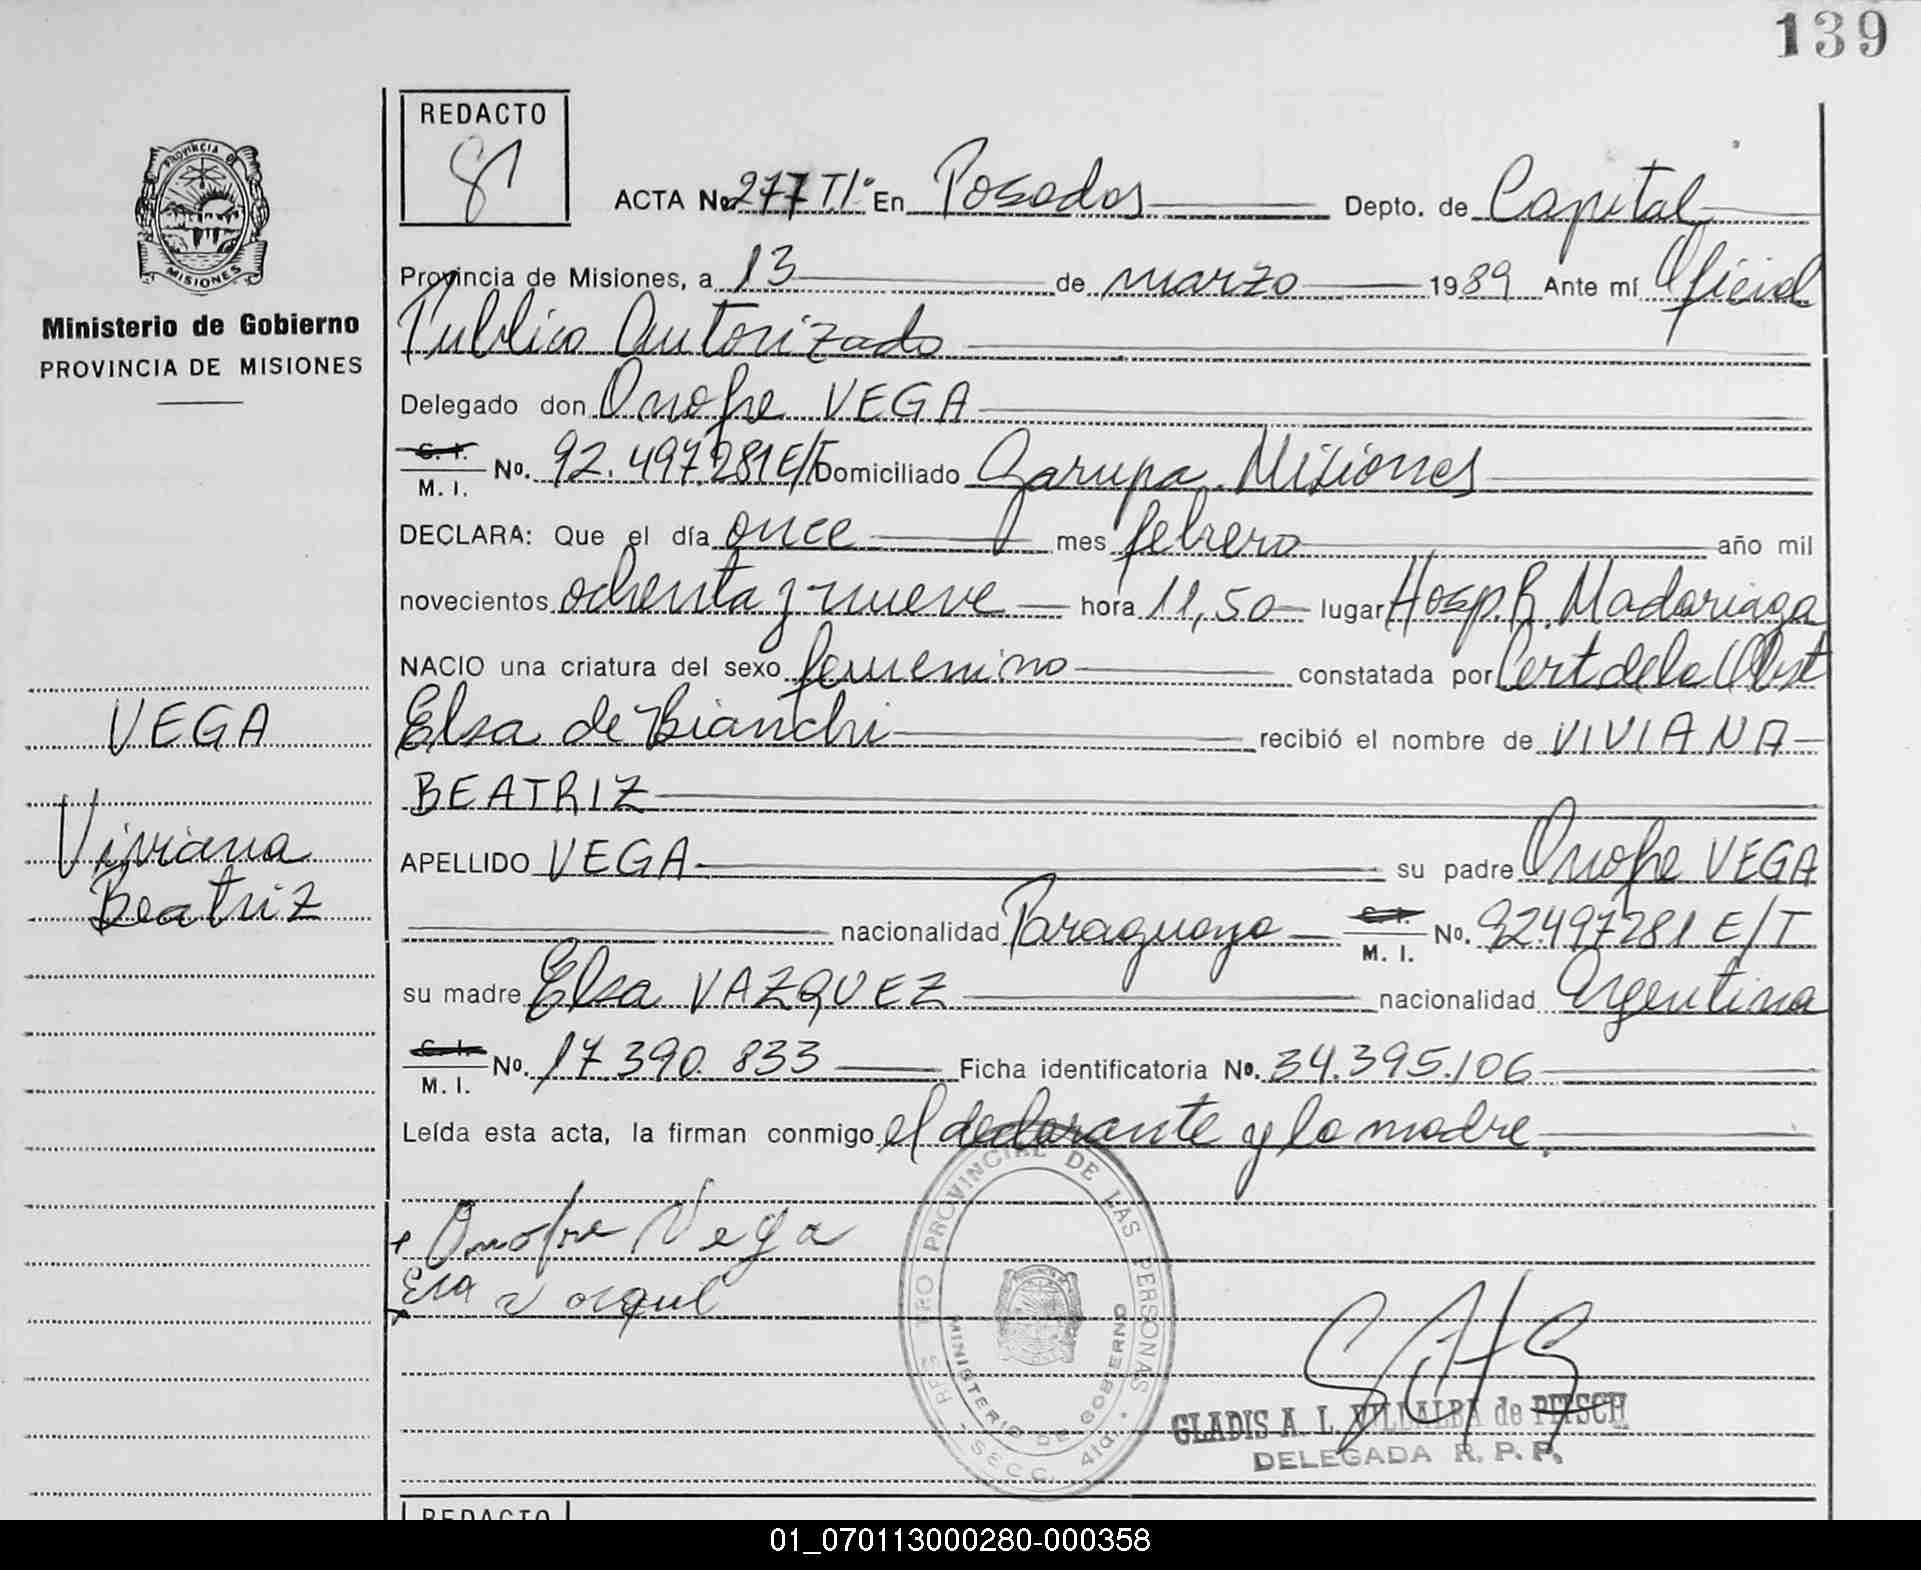 139
REDACTO
PROVINCIA DE
MISIONES
Ministerio de Gobierno
PROVINCIA DE MISIONES
ACTA No. 277 T.1º En Posadas Depto. de Capital
Provincia de Misiones, a 13 de marzo 1989 Ante mí Oficial
Publico Autorizado
Delegado don Onofre VEGA
C. I. M. I. No. 92.497.281 E/T Domiciliado Garupa. Misiones
DECLARA: Que el día once mes febrero año mil
novecientos ochenta y nueve hora 11,50 lugar Hosp. R. Madariaga
NACIO una criatura del sexo femenino constatada por Cert de la Obst
Elsa de Bianchi recibió el nombre de VIVIANA
BEATRIZ
APELLIDO VEGA su padre Onofre VEGA
nacionalidad Paraguaya C. I. M. I. No. 92497281 E/T
su madre Elsa VAZQUEZ nacionalidad Argentina
C. I. M. I. No. 17.390.833 Ficha identificatoria No. 34.395.106
Leída esta acta, la firman conmigo el declarante y la madre.
VEGA
Viviana
Beatriz
Onofre Vega
PROVINCIAL DE LAS PERSONAS
MINISTERIO DE GOBIERNO
SECC. 4ta.
GLADIS A. L. VILLALBA de PETSCH
DELEGADA R. P. P.
REDACTO
01_070113000280-000358